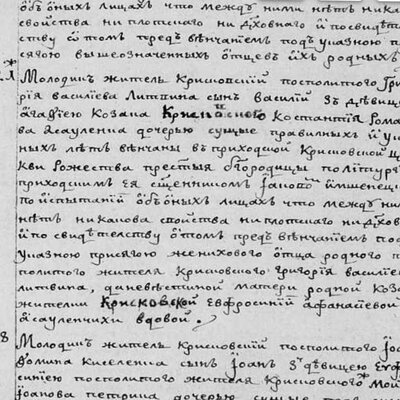 объ оныхъ лицахъ что между ними нетъ ника
свойства ни плотскаго ни дховнаго и посвидет
ству о томъ предъ венчаниемъ подъ указною п
сягою вышеозначенныхъ отцевъ ихъ родныхъ
Молодикъ жителъ Крисковский посполитого Гри
рия василиева Литвина сынъ василий з девице
агафиею козака Крисковского Костантия Рома
ва Асауленка дочерью сущые правилныхъ и ук
ныхъ летъ венчаны въ приходской Крисковской ц
кви рожества престыя бгородицы
приходскимъ ея сщенникомъ
по испытании объ оныхъ лицахъ что между ни
нетъ никакова свойства ни плотскаго ни духов
и по свидетелству о томъ предъ венчаниемъ по
указною присягою женихового отца родного п
политого жителя Крисковского григория василие
литвина, а невестиной матери родной козач
жителки Крисковской Евфросинии афанасиевой
асауленчихи вдовой.
8 Молодикъ жителъ Крисковский посполитого
сынъ Иоанъ з девицею Еуф
синиею посполитого жителя Крисковского
Иоанова петрика дочерью сущые